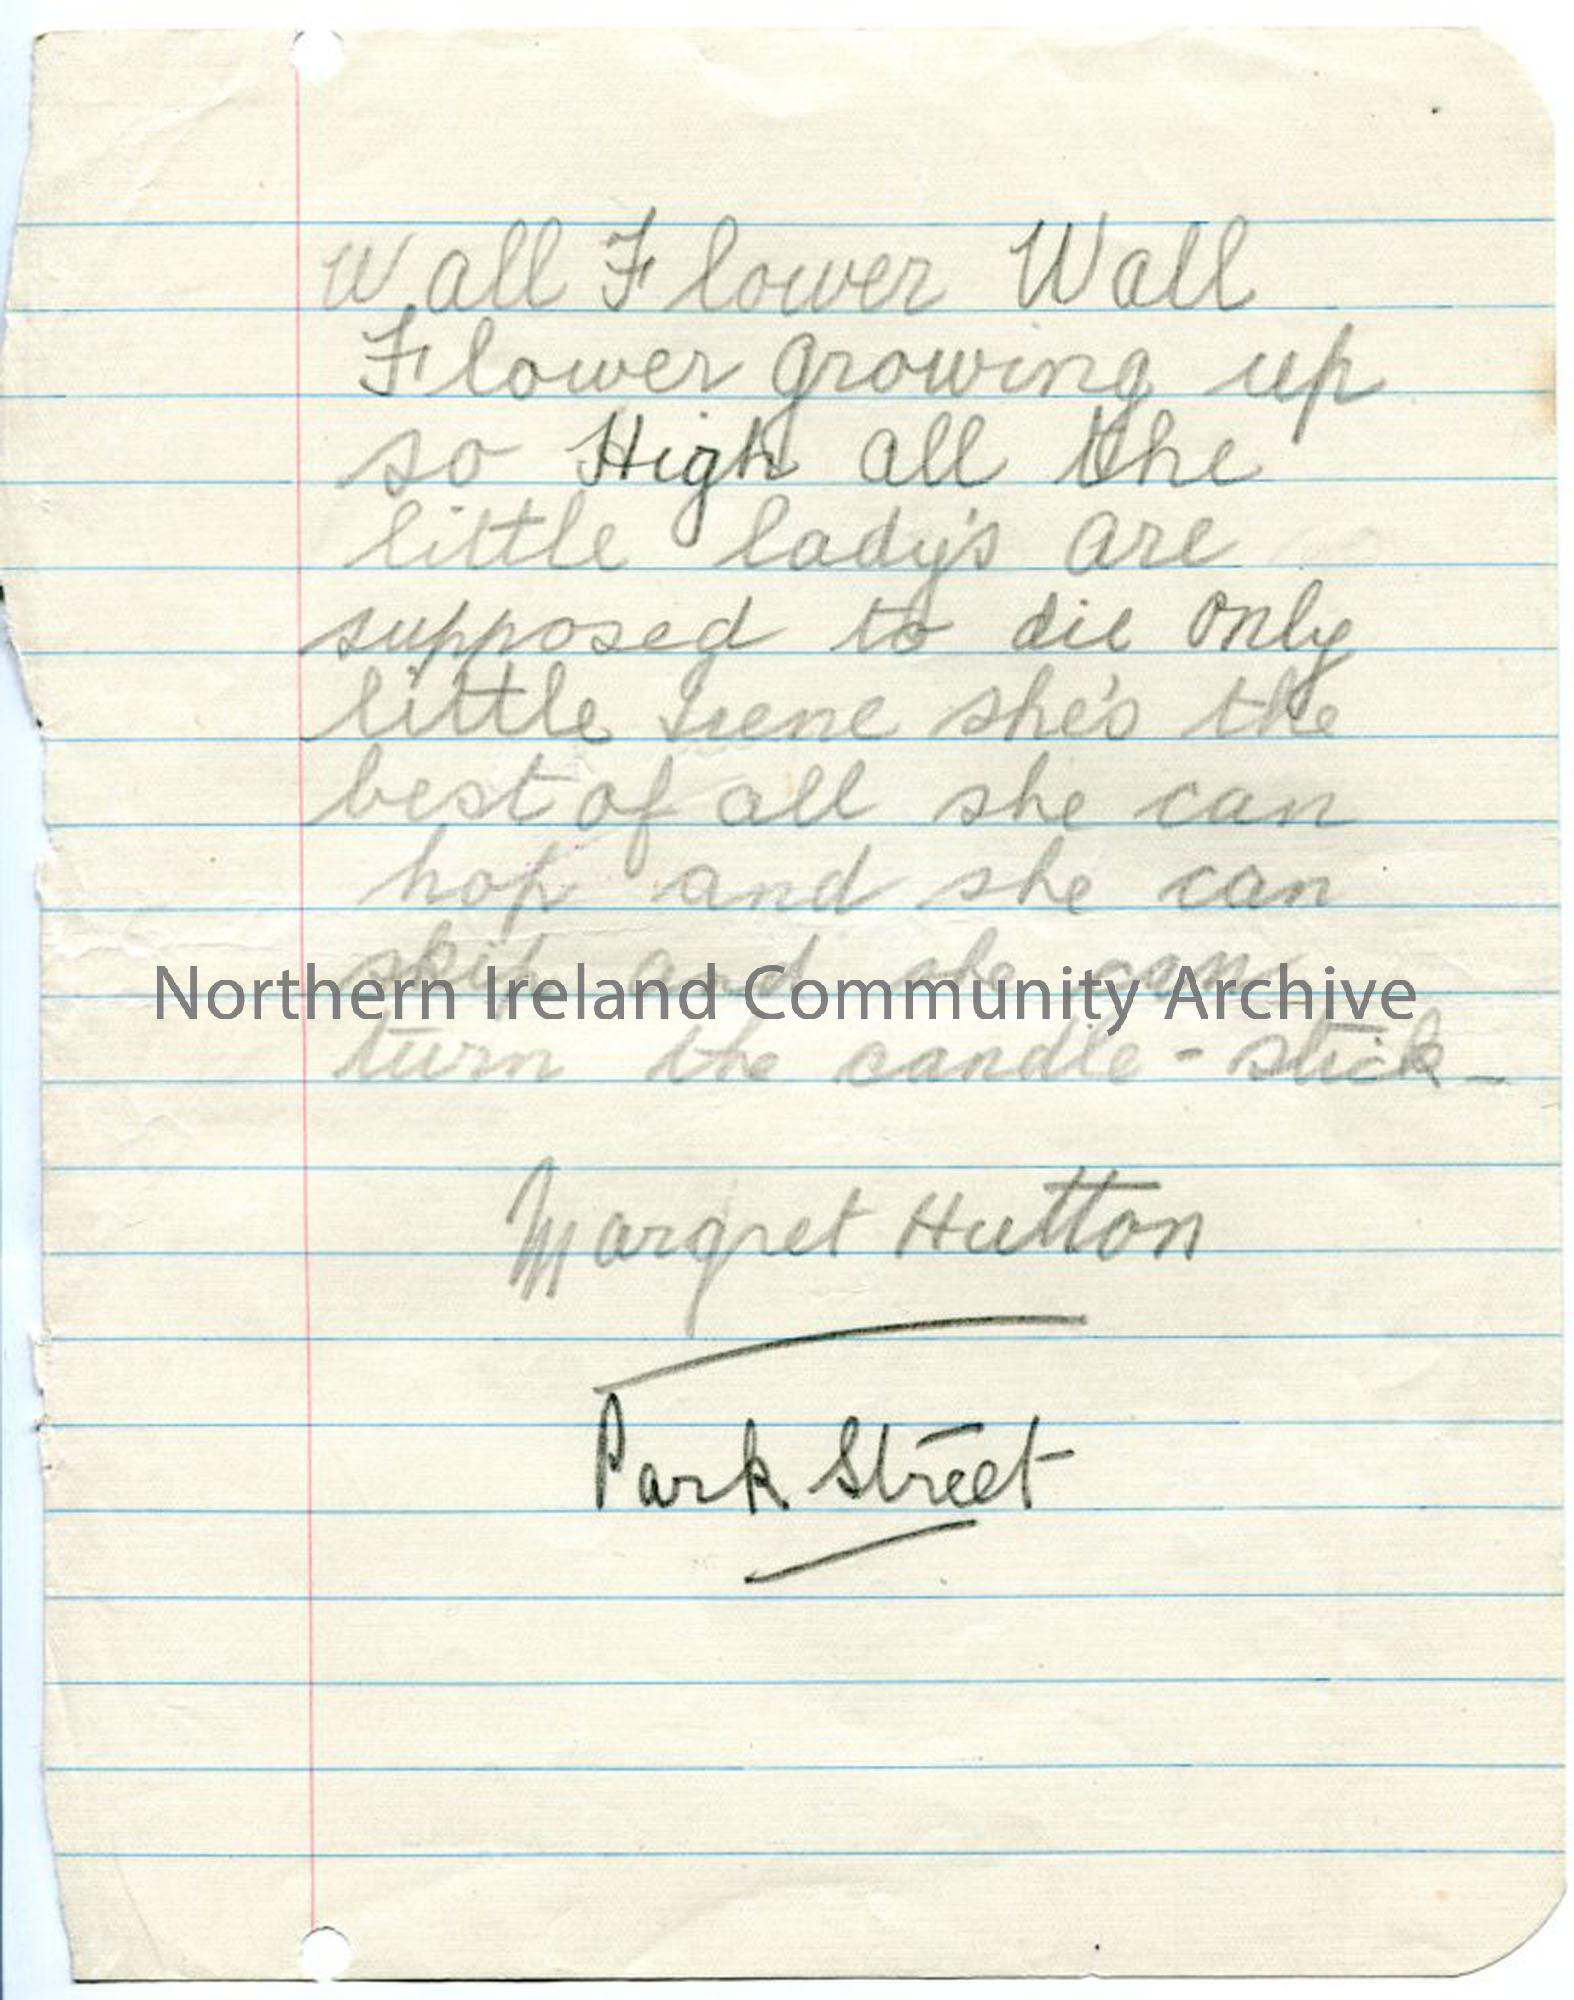 Wall Flower Wall
Flower growing up
so High all the
little lady's are
supposed to die only
little Irene she's the
best of all she can
hop and she can
skip and she can
Northern Ireland Community Archive
turn the candle-stick-
Margret Hutton
Park Street